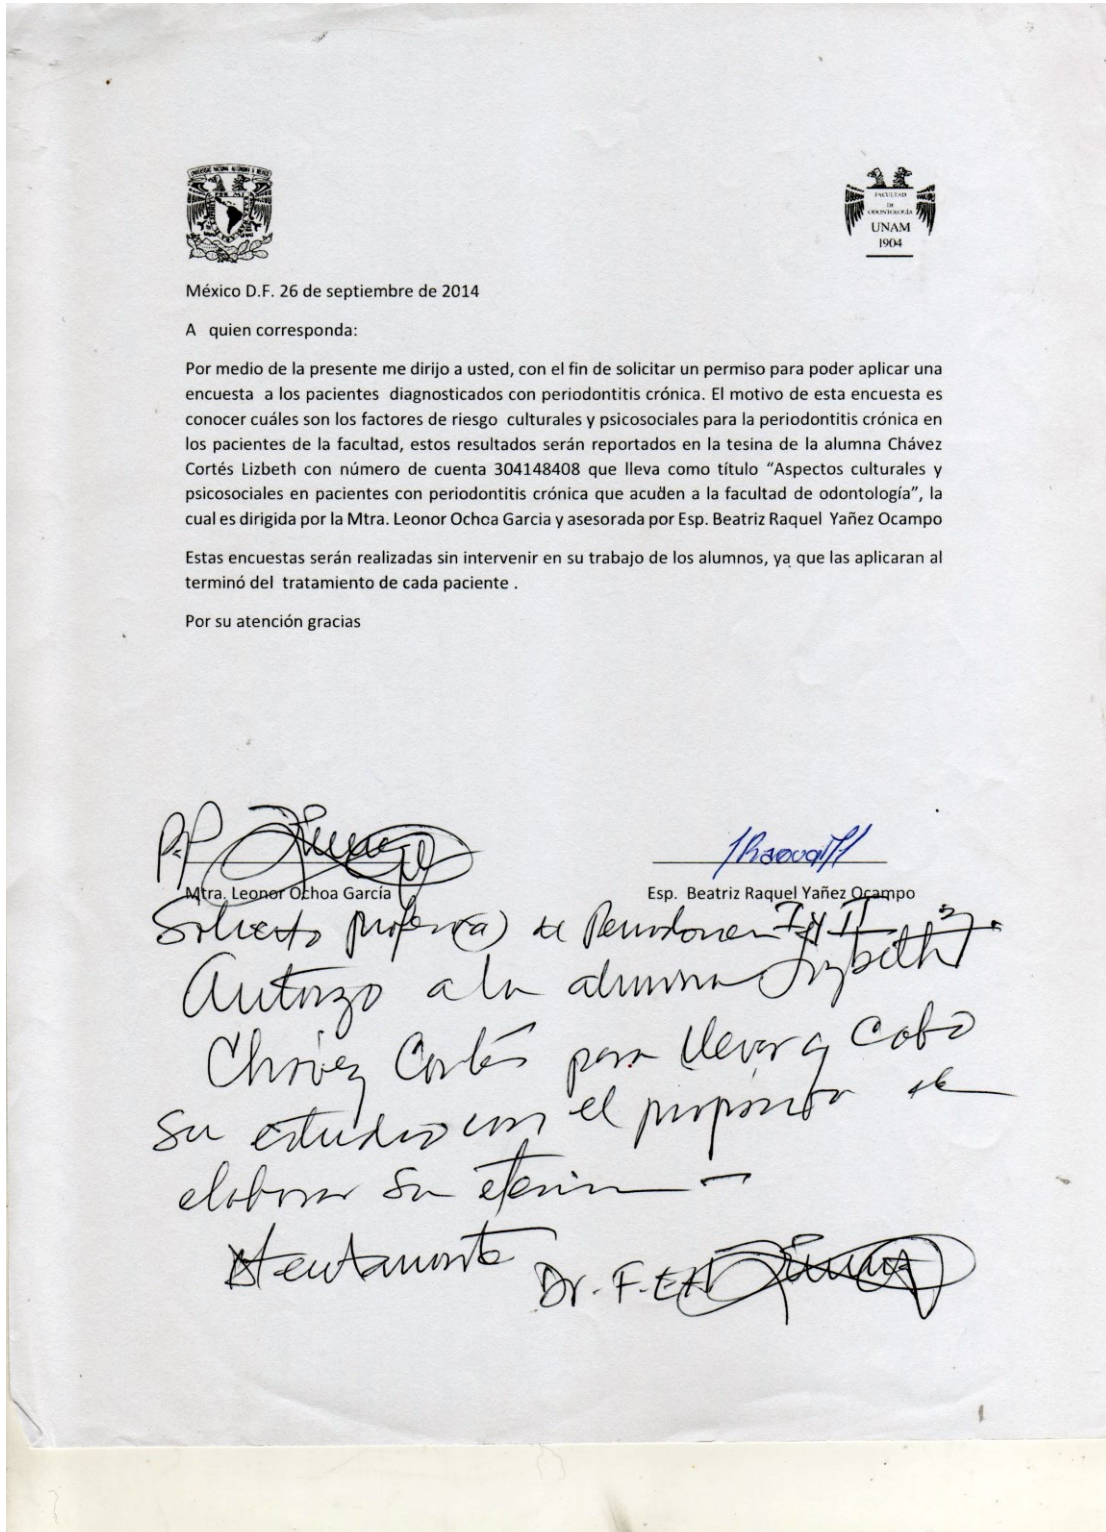 UNIVERSIDAD NACIONAL AUTÓNOMA DE MÉXICO
FACULTAD
DE
ODONTOLOGÍA
UNAM
1904
México D.F. 26 de septiembre de 2014
A quien corresponda:
Por medio de la presente me dirijo a usted, con el fin de solicitar un permiso para poder aplicar una
encuesta a los pacientes diagnosticados con periodontitis crónica. El motivo de esta encuesta es
conocer cuáles son los factores de riesgo culturales y psicosociales para la periodontitis crónica en
los pacientes de la facultad, estos resultados serán reportados en la tesina de la alumna Chávez
Cortés Lizbeth con número de cuenta 304148408 que lleva como título “Aspectos culturales y
psicosociales en pacientes con periodontitis crónica que acuden a la facultad de odontología”, la
cual es dirigida por la Mtra. Leonor Ochoa Garcia y asesorada por Esp. Beatriz Raquel Yañez Ocampo
Estas encuestas serán realizadas sin intervenir en su trabajo de los alumnos, ya que las aplicaran al
terminó del tratamiento de cada paciente .
Por su atención gracias
P.P
Mtra. Leonor Ochoa García
Esp. Beatriz Raquel Yañez Ocampo
profesor(a) de I y II
Autorizo a la alumna Lizbeth
Chávez Cortés para llevar a cabo
su estudio con el propósito de
elaborar su tesina
Atentamente Dr. F.